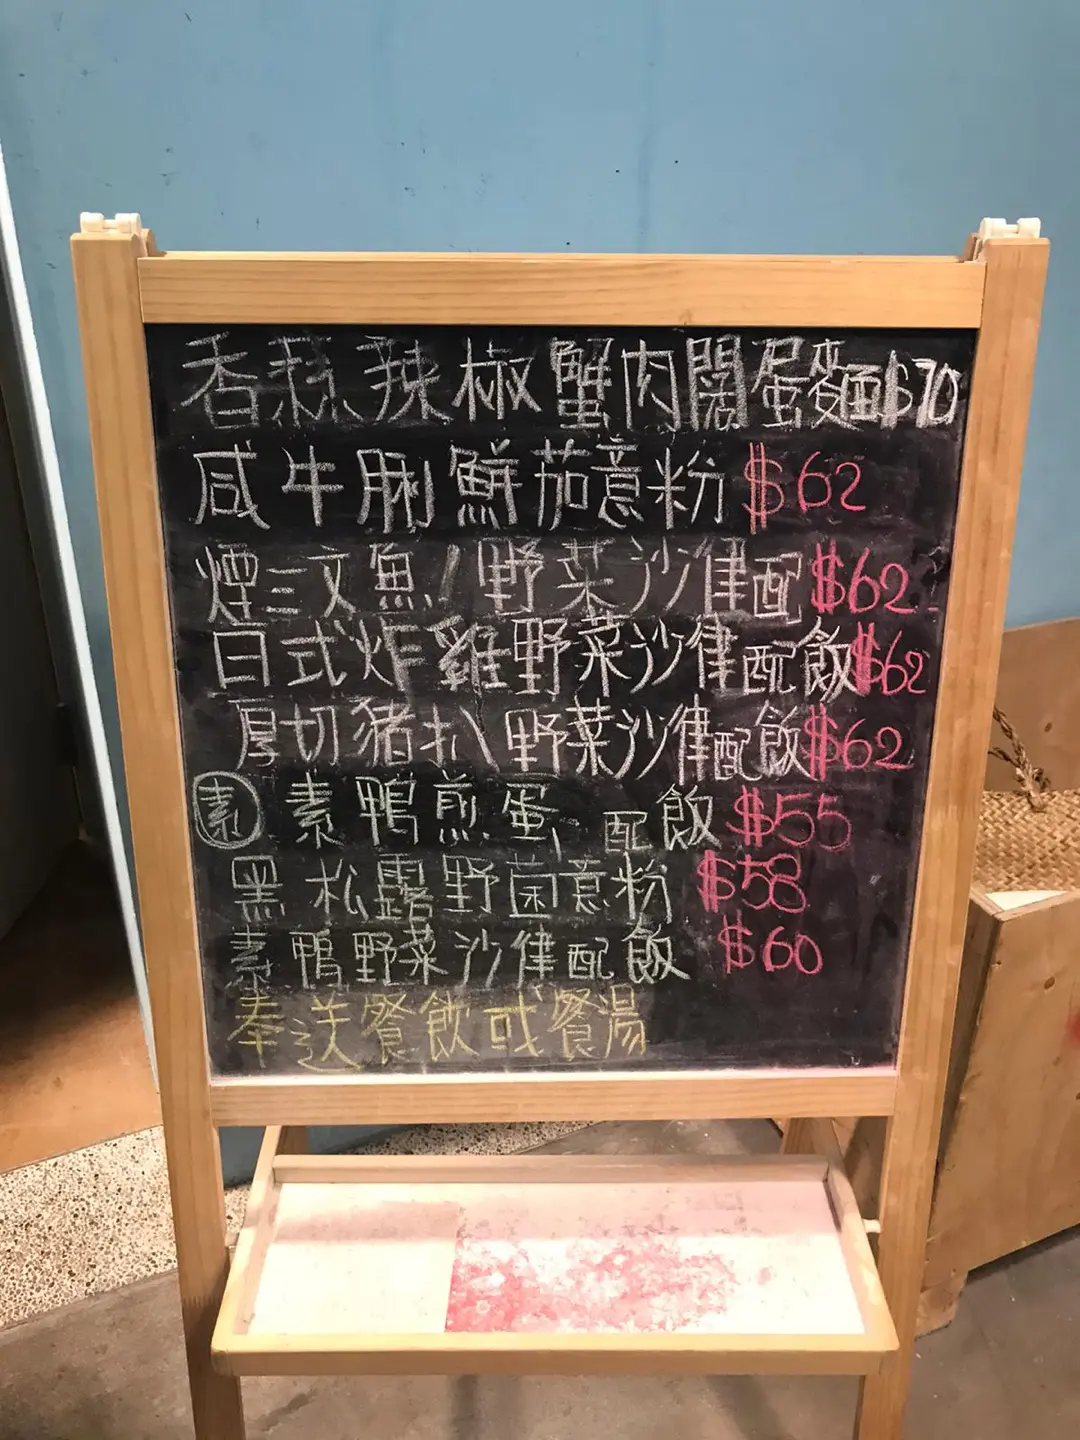 香蒜辣椒蟹肉闊蛋麵$70
咸牛脷鮮茄意粉 $62
煙三文魚/野菜沙律配 $62
日式炸雞野菜沙律配飯$62
厚切豬扒野菜沙律配飯$62
素 素鴨煎蛋,配飯 $55
黑松露野菌意粉 $58
素鴨野菜沙律配飯 $60
奉送餐飲或餐湯